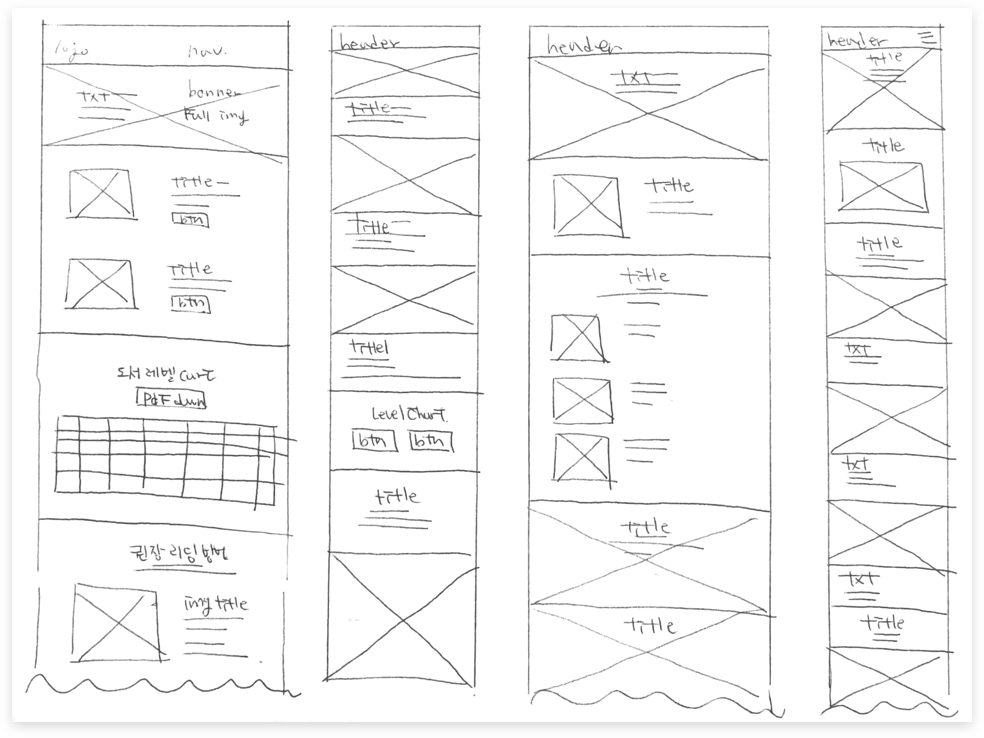 logo nav.
txt
banner
Full img
title
btn
title
btn
도서 레벨 Curt
PdF down
권장 리딩 방법
img title
header
title
title
title
Level Chart.
btn btn
title
header
txt
title
title
title
title
header
title
title
title
txt
txt
txt
title